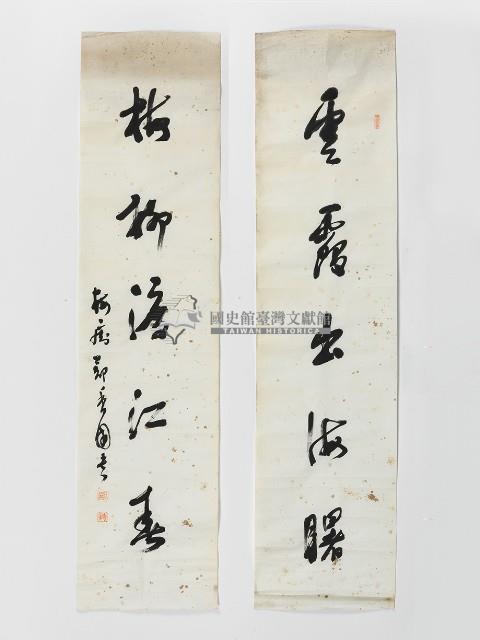 雲霞出海曙
梅柳澹江春
梅癡鄭香圃書
國史館臺灣文獻館
TAIWAN HISTORICA